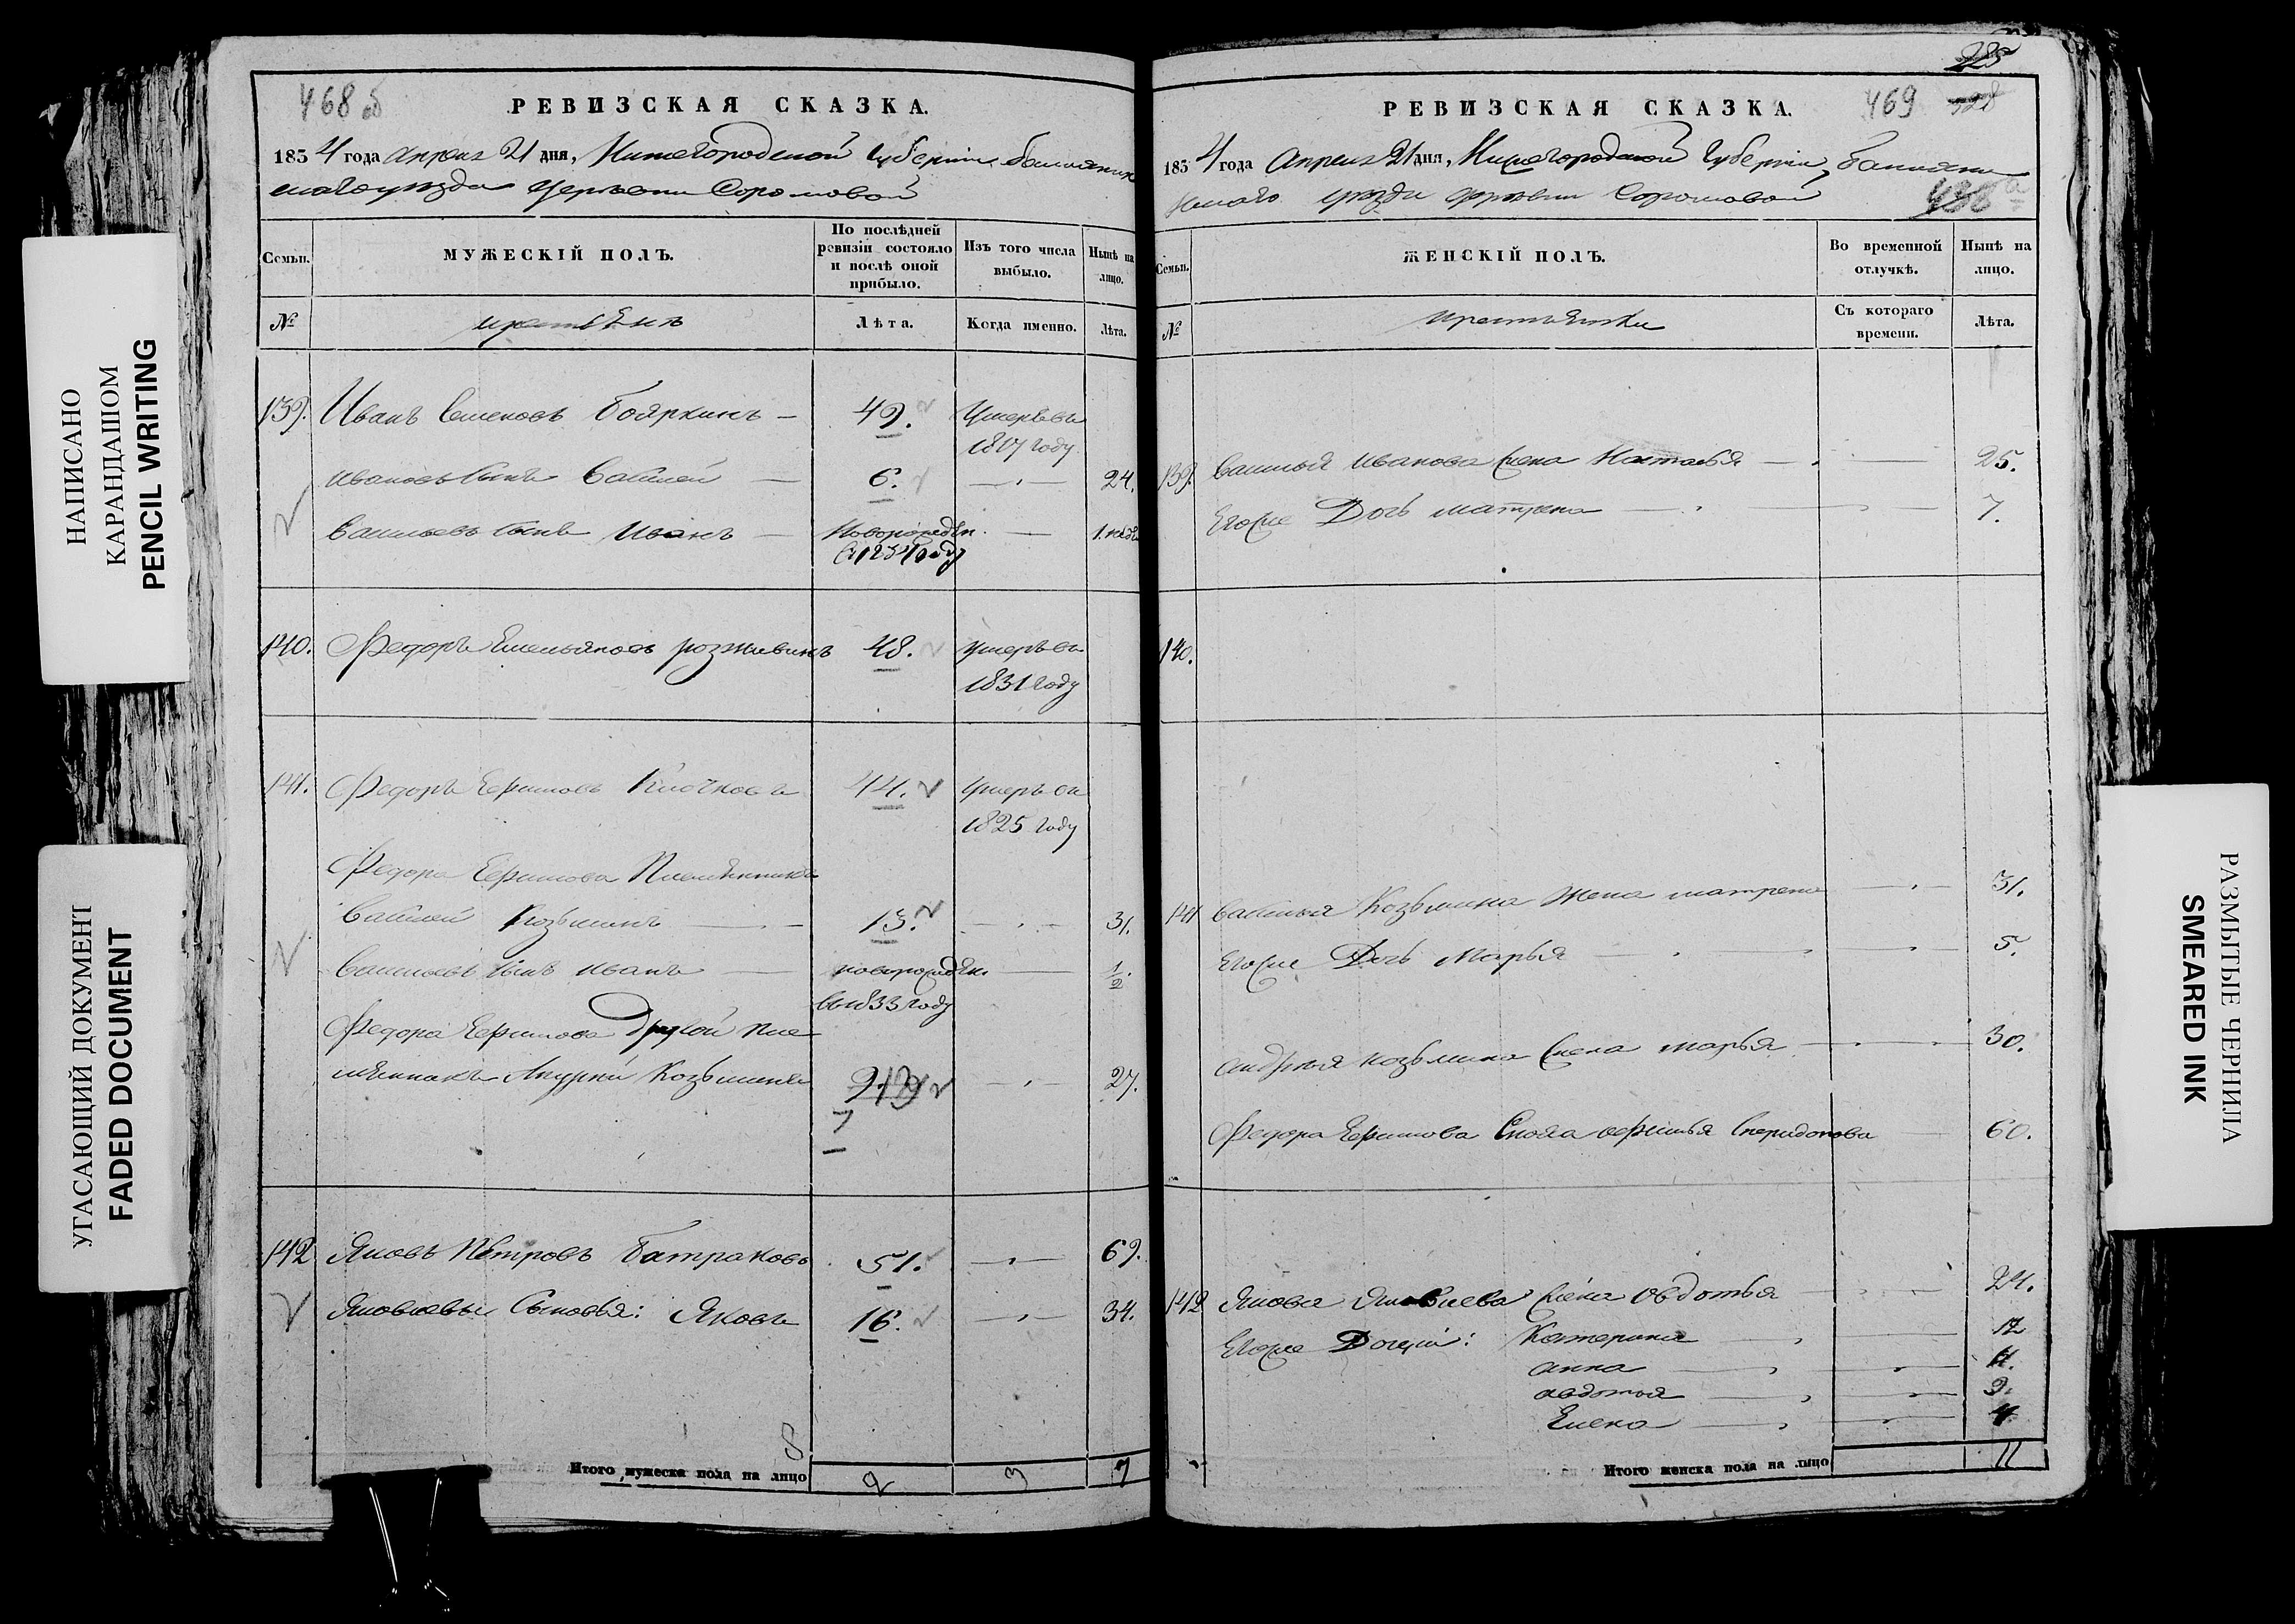 НАПИСАНО
КАРАНДАШОМ
PENCIL WRITING
УГАСАЮЩИЙ ДОКУМЕНТ
FADED DOCUMENT
468 об
РЕВИЗСКАЯ СКАЗКА.
1834 года апреля 21 дня, Нижегородской губернии
уезда Соромовой
Семьи.
МУЖЕСКІЙ ПОЛЪ.
По послѣдней ревизіи состояло и послѣ оной прибыло.
Изъ того числа выбыло.
Нынѣ на лицо.
№
Лѣта.
Когда именно.
Лѣта.
139. Иванъ Семеновъ Бояркинъ — 49. Умеръ въ
1817 году
Ивановъ сынъ Василей — 6. — 24.
Васильевъ сынъ Иванъ — Новорожден. — 1.
140. Федоръ Емельяновъ 48. умеръ въ
1831 году
141. Федоръ Ефимовъ Клочковъ 44. умеръ въ
1825 году
Федора Ефимова Племянникъ
Василей Козьминъ — 13. — 31.
Васильевъ сынъ Иванъ — новорожден. — 1/2.
въ 1833 году
Федора Ефимова Другой пле
мянникъ Козьминъ — 27.
142 Яковъ Петровъ Батраковъ 51. — 69.
Яковлевы Сыновья: Яковъ 16. — 34.
8
Итого мужеска пола на лицо 2 3 7
285
РЕВИЗСКАЯ СКАЗКА. 469
1834 года Апреля 21 дня, Нижегородской губернии,
уезда Соромовой
Семьи.
ЖЕНСКІЙ ПОЛЪ.
Во временной отлучкѣ.
Нынѣ на лицо.
№
Съ котораго времени.
Лѣта.
139. Василья Иванова жена Настасья — 25.
Его же Дочь матрена — 7.
140.
141 Василья Козьмина Жена матрена — 31.
Его же Дочь Марья — 5.
Козьмина жена марья — 30.
Федора Ефимова Сноха Спиридонова 60.
142 Якова Яковлева жена Овдотья 24.
Его же Дочери: Катерина — 12
анна — 11.
авдотья — 9.
Елена — 4.
Итого женска пола на лицо 11
РАЗМЫТЫЕ ЧЕРНИЛА
SMEARED INK